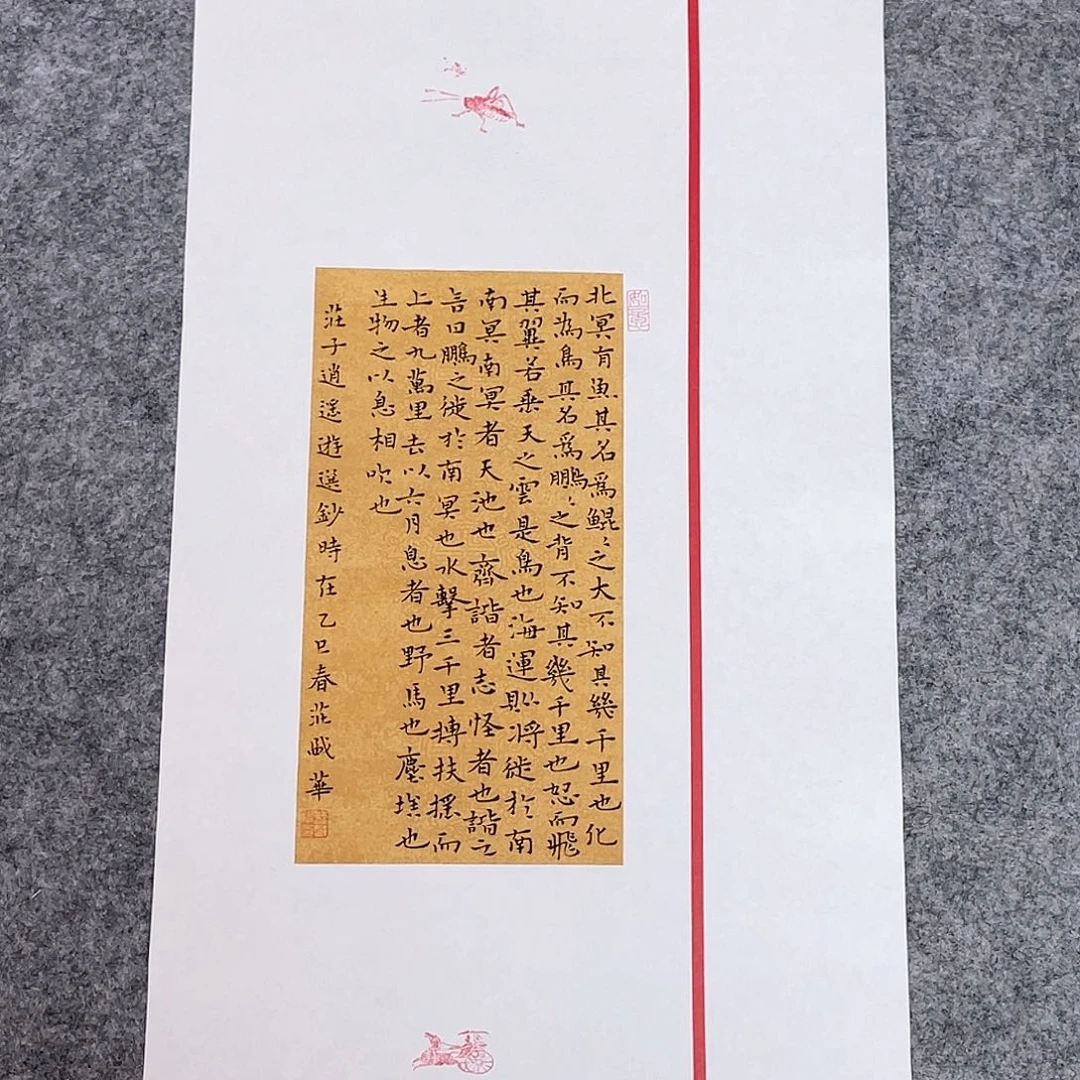 北冥有魚其名為鯤〻之大不知其幾千里也化
而為鳥其名為鵬〻之背不知其幾千里也怒而飛
其翼若垂天之雲是鳥也海運則將徙於南
南冥南冥者天池也齊諧者志怪者也諧之
言曰鵬之徙於南冥也水擊三千里摶扶搖而
上者九萬里去以六月息者也野馬也塵埃也
生物之以息相吹也
莊子逍遙遊選鈔時在乙巳春莊華